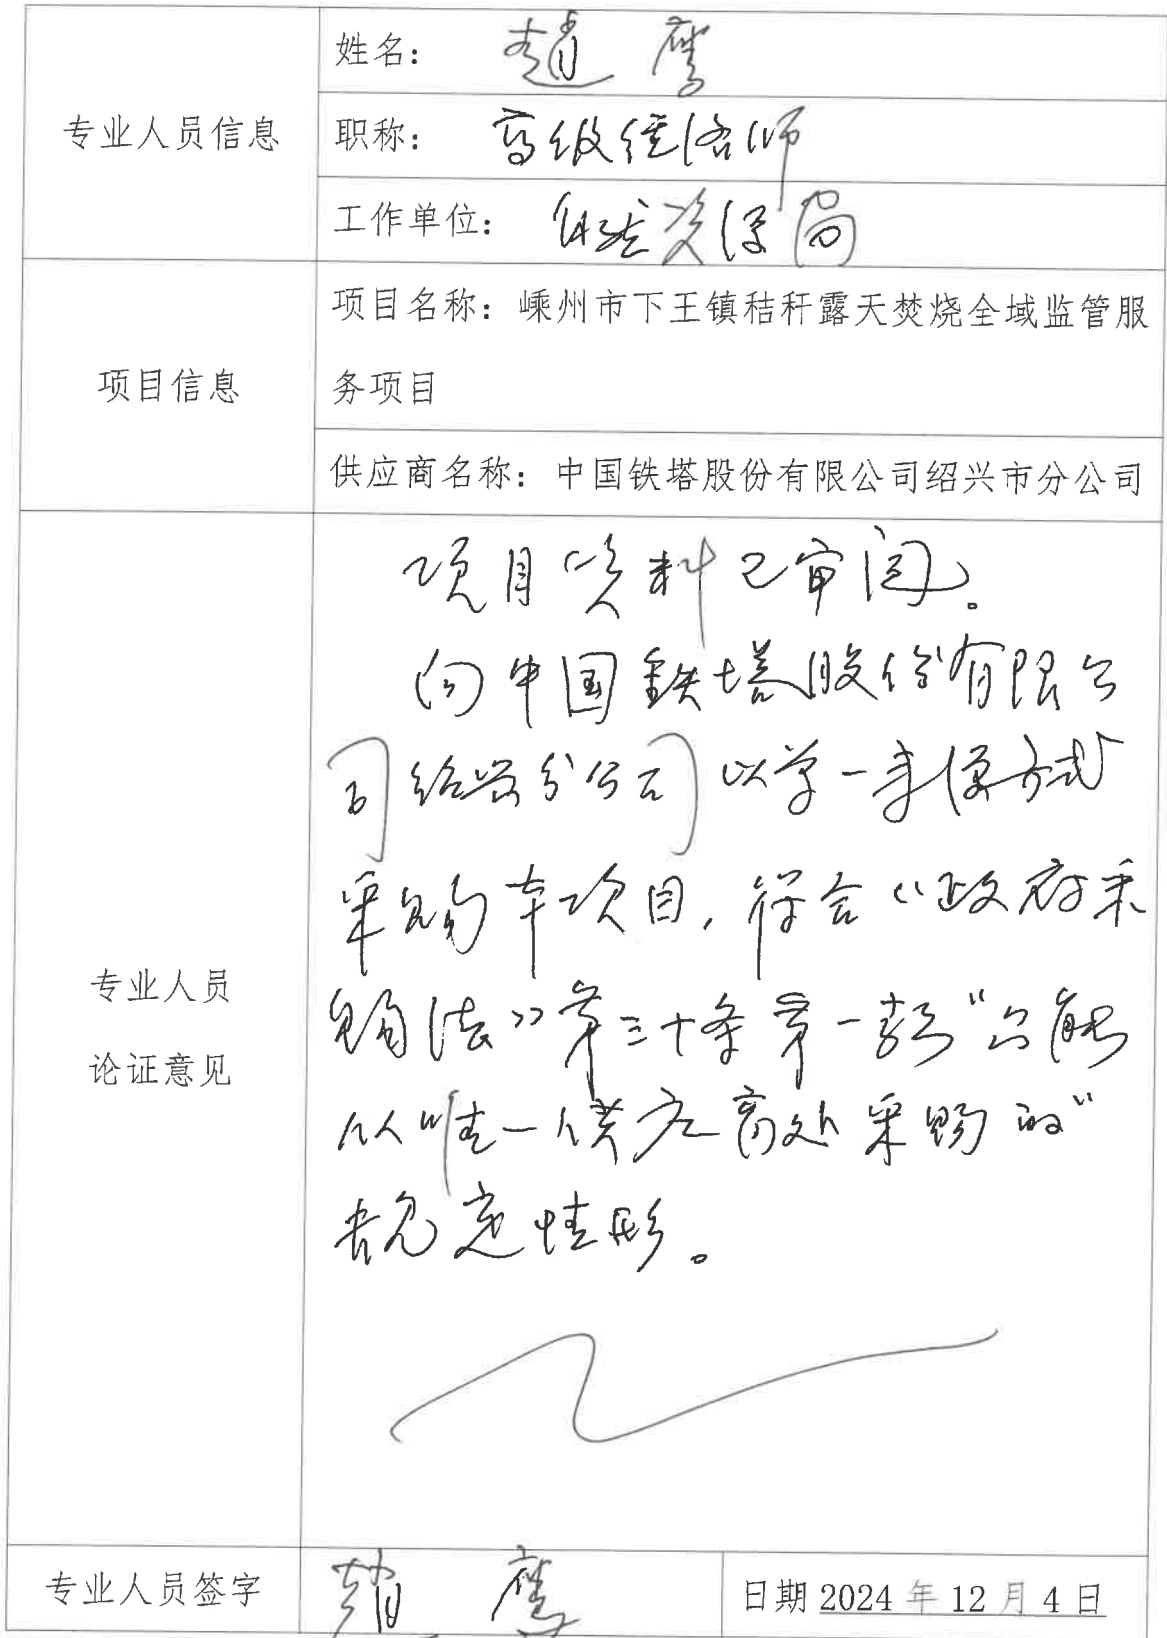 专业人员信息
姓名：赵鹰
职称：高级经济师
工作单位：自然资源局
项目信息
项目名称：嵊州市下王镇秸秆露天焚烧全域监管服
务项目
供应商名称：中国铁塔股份有限公司绍兴市分公司
专业人员
论证意见
项目资料已审阅。
向中国铁塔股份有限公
司绍兴分公司以单一来源方式
采购本项目，符合《政府采
购法》第三十条第一款“只能
从唯一供应商处采购的”
规定情形。
专业人员签字
赵鹰
日期 2024 年 12 月 4 日